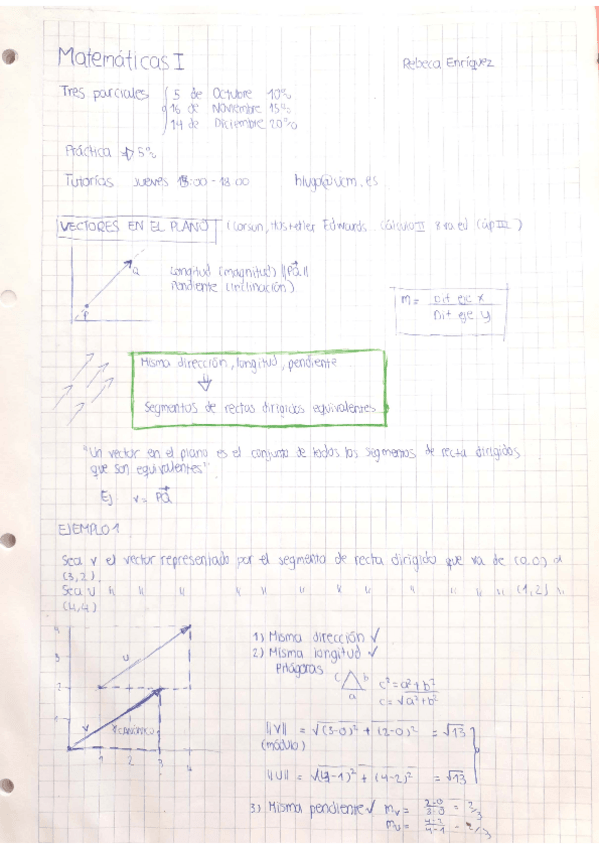 Matemáticas I
Rebeca Enríquez
Tres parciales
5 de Octubre 10%
16 de Noviembre 15%
14 de Diciembre 20%
Práctica → 5%
Tutorías Jueves 00 - 18 00 hlugo@ucm.es
VECTORES EN EL PLANO (Larson, Hostetler Edwards Cálculo II ed Cáp III)
Q
P
Longitud (magnitud) ||PQ||
Pendiente (inclinación)
m = Dif eje x / Dif eje y
Misma dirección, longitud, pendiente
⇓
Segmentos de rectas dirigidos equivalentes
"Un vector en el plano es el conjunto de todos los segmentos de recta dirigidos
que son equivalentes"
Ej v = PQ
EJEMPLO 1
Sea v el vector representado por el segmento de recta dirigido que va de (0,0) a
(3,2).
Sea u " " " " " " " " " " " (1,2) "
(4,4)
4
3
2
1
u
v
CANÓNICO
1 2 3 4
1) Misma dirección ✓
2) Misma longitud ✓
Pitágoras
c b
a
c² = a² + b²
c = √a² + b²
||V|| = √(3-0)² + (2-0)² = √13
(módulo)
||U|| = √(4-1)² + (4-2)² = √13
3) Misma pendiente ✓ mv = 2-0 / 3-0 = 2/3
mu = 4-2 / 4-1 = 2/3